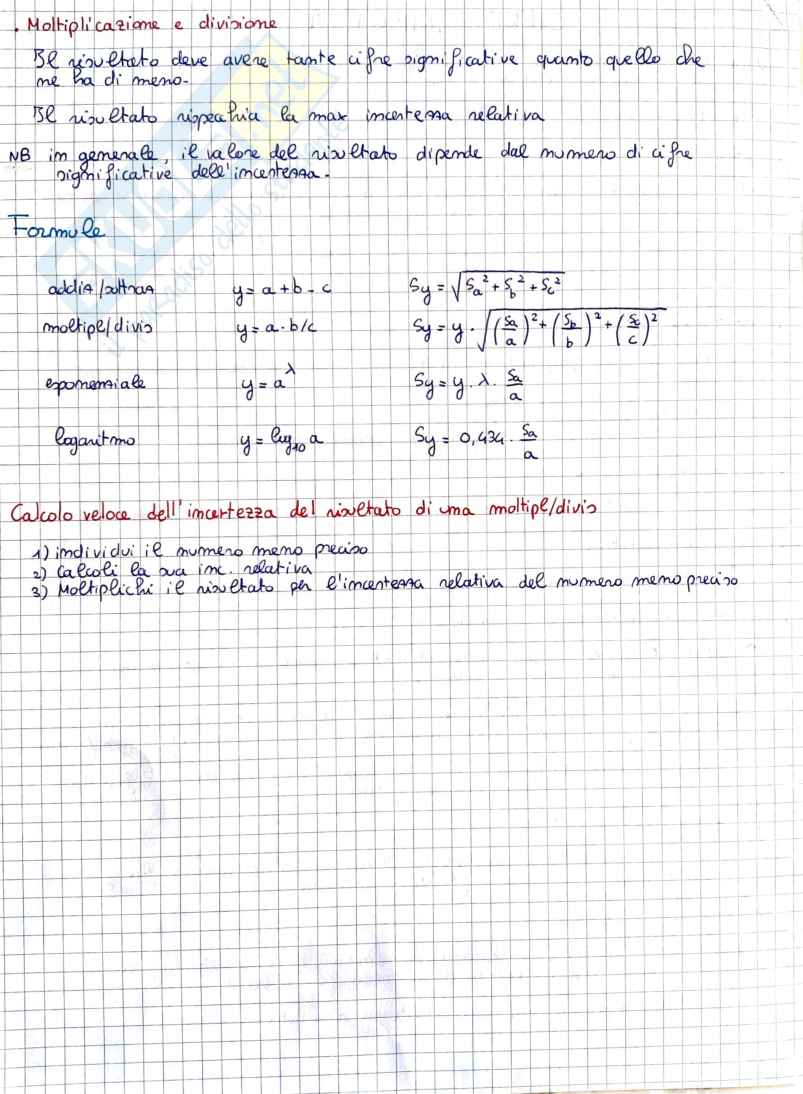 . Moltiplicazione e divisione
Il risultato deve avere tante cifre significative quanto quello che
ne ha di meno.
Il risultato rispecchia la max incertezza relativa
NB in generale, il valore del risultato dipende dal numero di cifre
significative dell'incertezza.
Formule
addiz/sottraz y = a + b - c Sy = √(Sa² + Sb² + Sc²)
moltipl/divis y = a · b/c Sy = y · √((Sa/a)² + (Sb/b)² + (Sc/c)²)
esponenziale y = a^λ Sy = y · λ · Sa/a
logaritmo y = log₁₀ a Sy = 0,434 · Sa/a
Calcolo veloce dell'incertezza del risultato di una moltipl/divis
1) individui il numero meno preciso
2) Calcoli la sua inc. relativa
3) Moltiplichi il risultato per l'incertezza relativa del numero meno preciso